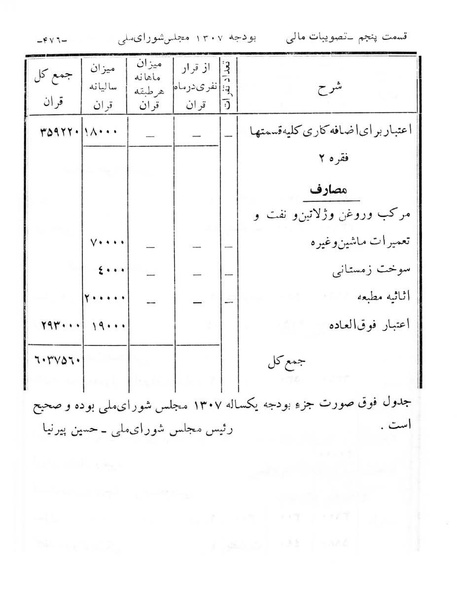 قسمت پنجم ـ تصویبات مالی بودجه ۱۳۰۷ مجلس شورای ملی ـ۴۷۶ـ
شرح تعداد نفرات از قرار نفری در ماه قران میزان ماهانه هر طبقه قران میزان سالیانه قران جمع کل قران
اعتبار برای اضافه کاری کلیه قسمتها ــ ــ ــ ۱۸۰۰۰ ۳۵۹۲۲۰
فقره ۲
مصارف
مرکب و روغن و ژلاتین و نفت و
تعمیرات ماشین و غیره ــ ــ ــ ۷۰۰۰۰
سوخت زمستانی ــ ــ ــ ۴۰۰۰
اثاثیه مطبعه ــ ــ ــ ۲۰۰۰۰۰
اعتبار فوق العاده ۱۹۰۰۰ ۲۹۳۰۰۰
جمع کل ۶۰۳۷۵۶۰
جدول فوق صورت جزء بودجه یکساله ۱۳۰۷ مجلس شورای ملی بوده و صحیح
است . رئیس مجلس شورای ملی ـ حسین پیرنیا